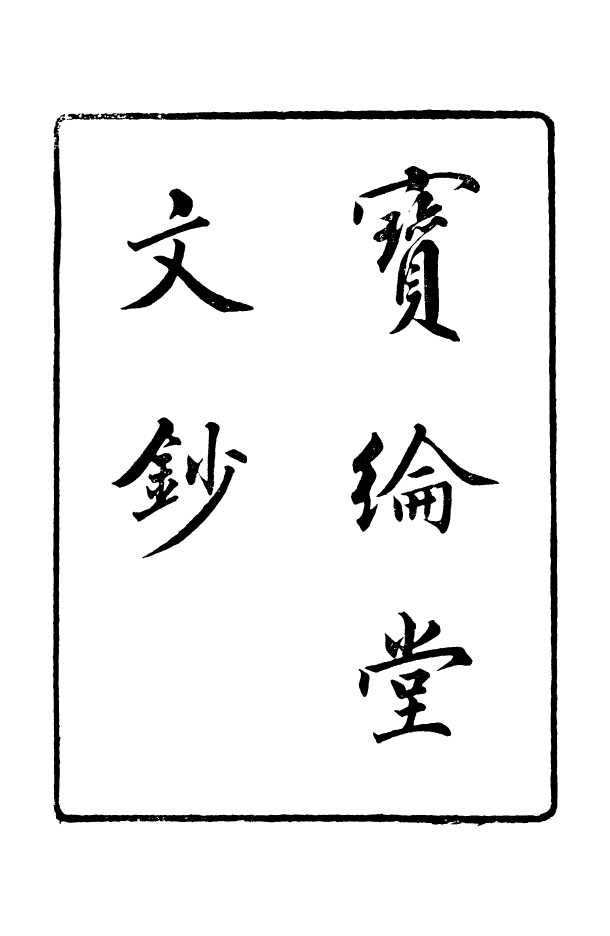 寶綸堂
文鈔